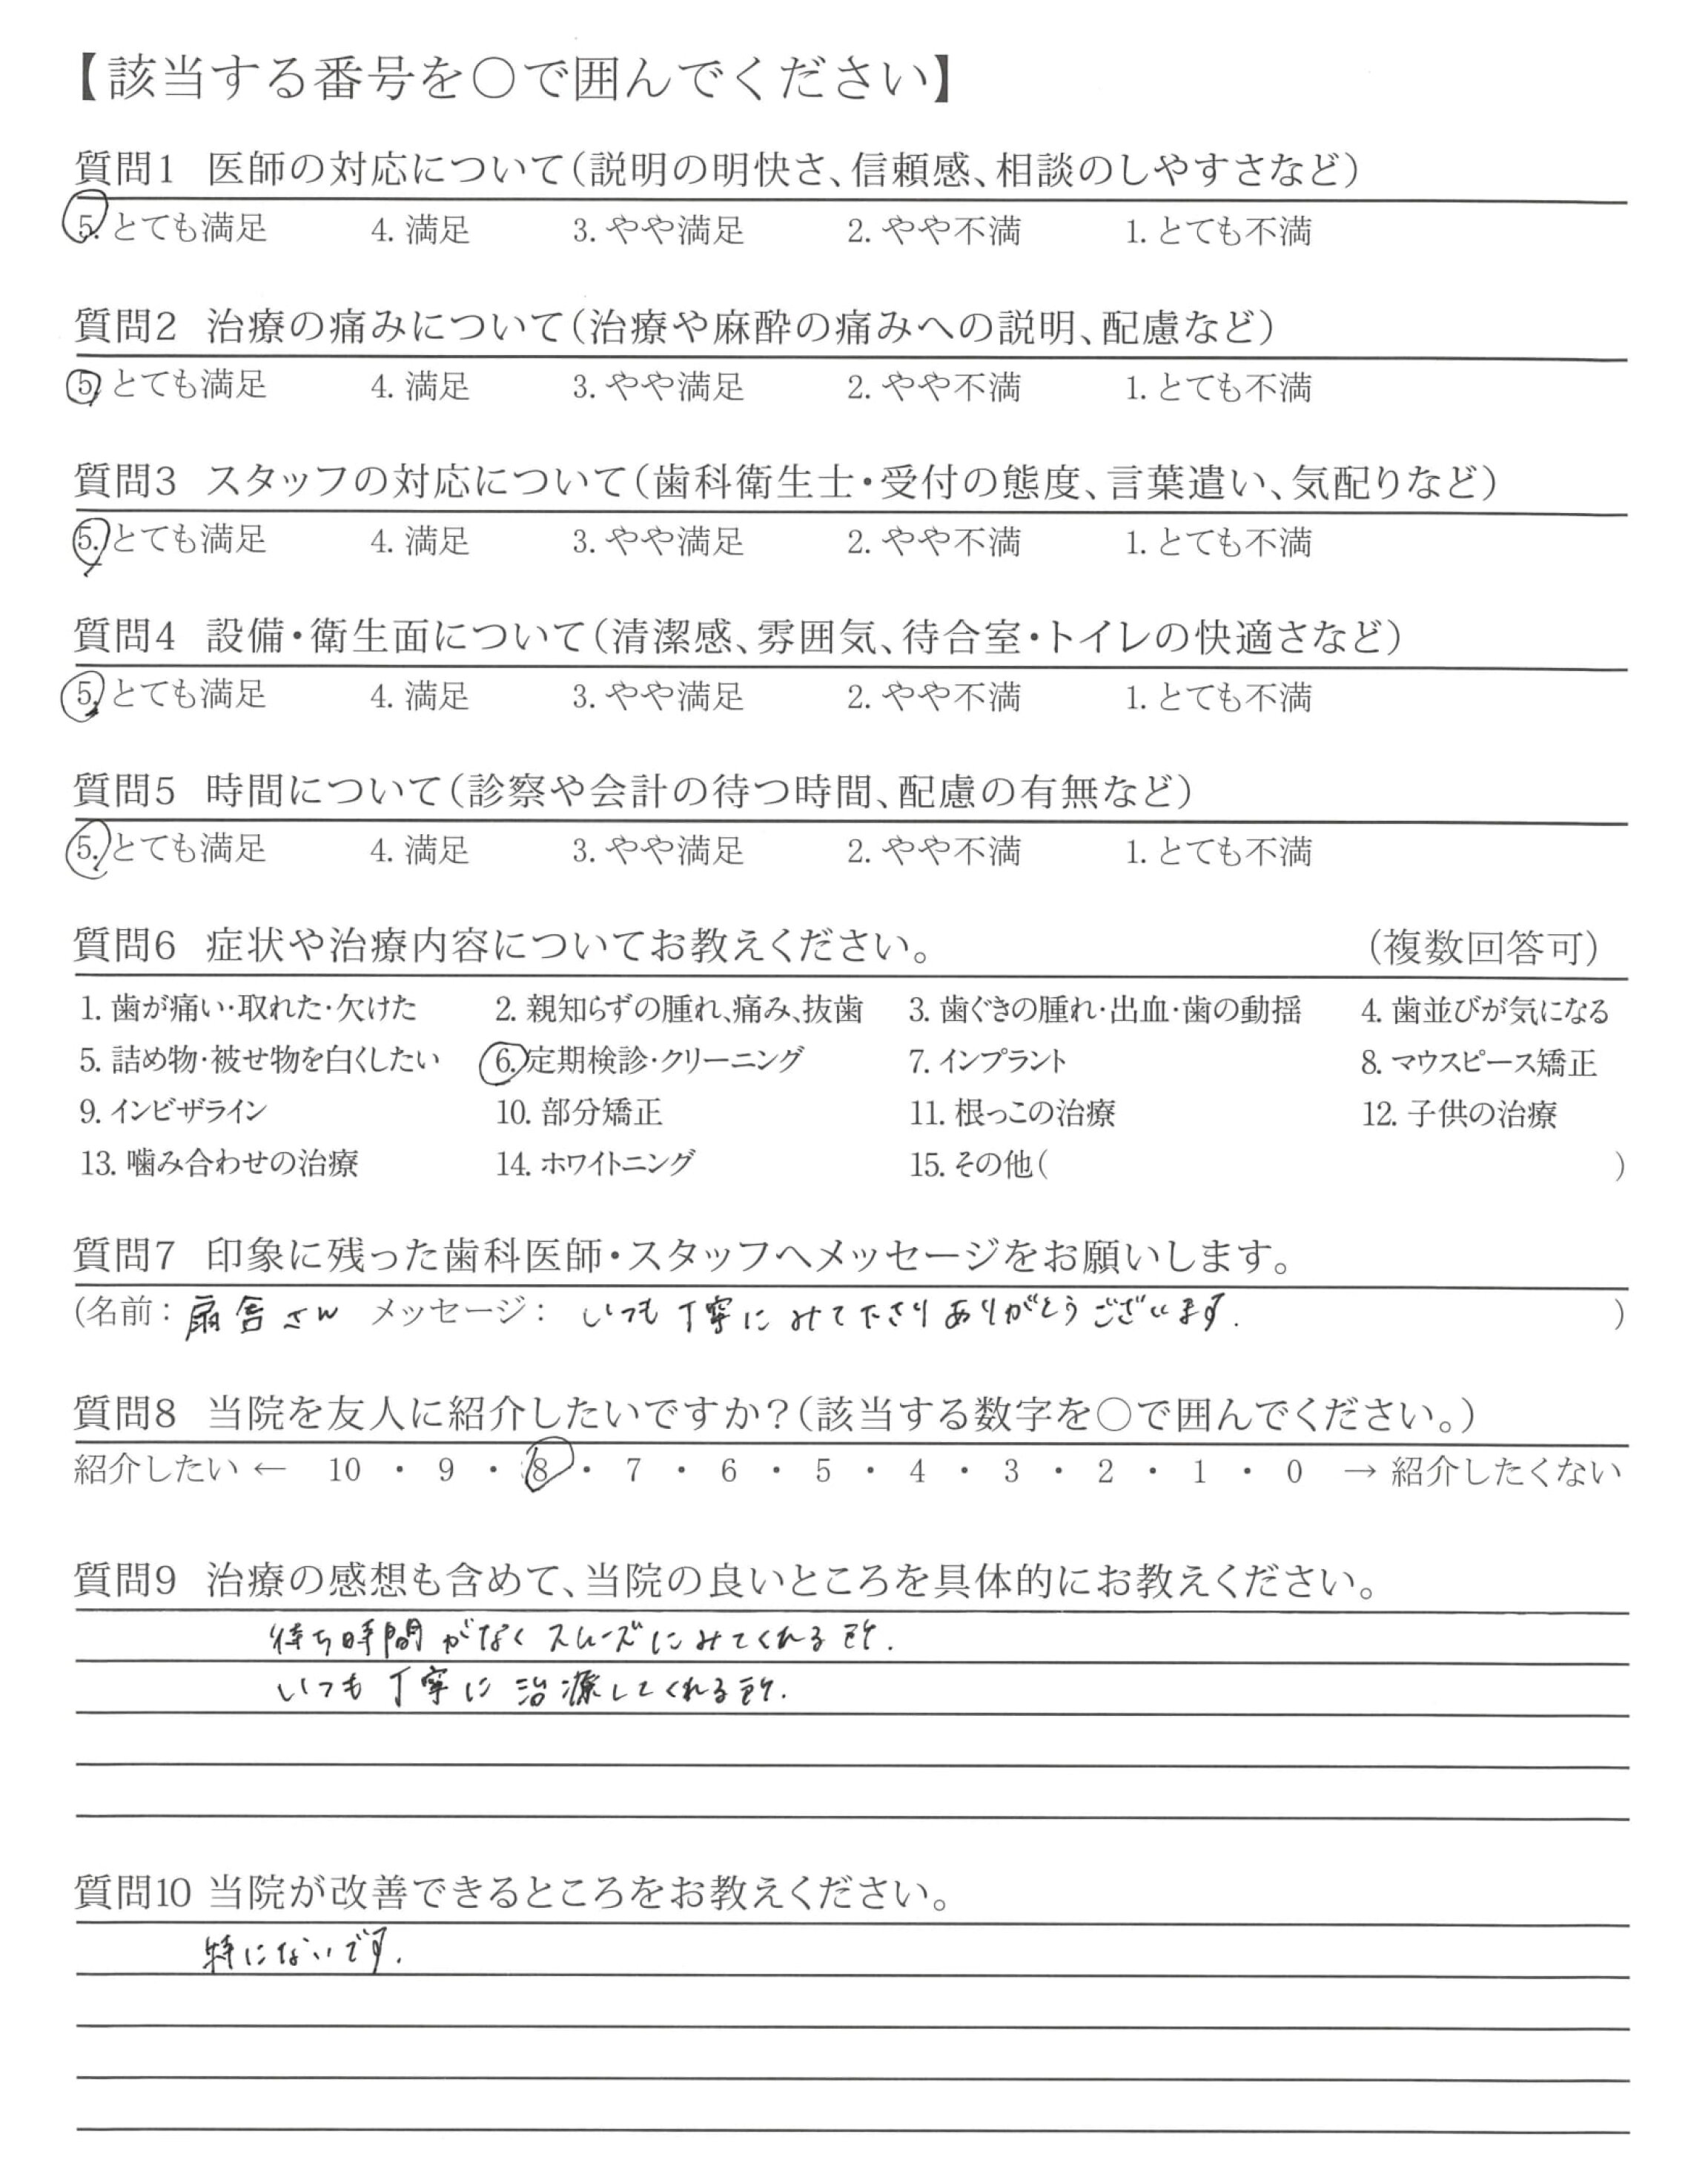 【該当する番号を○で囲んでください】
質問1 医師の対応について(説明の明快さ、信頼感、相談のしやすさなど)
5. とても満足 4. 満足 3. やや満足 2. やや不満 1. とても不満
質問2 治療の痛みについて(治療や麻酔の痛みへの説明、配慮など)
5. とても満足 4. 満足 3. やや満足 2. やや不満 1. とても不満
質問3 スタッフの対応について(歯科衛生士・受付の態度、言葉遣い、気配りなど)
5. とても満足 4. 満足 3. やや満足 2. やや不満 1. とても不満
質問4 設備・衛生面について(清潔感、雰囲気、待合室・トイレの快適さなど)
5. とても満足 4. 満足 3. やや満足 2. やや不満 1. とても不満
質問5 時間について(診察や会計の待つ時間、配慮の有無など)
5. とても満足 4. 満足 3. やや満足 2. やや不満 1. とても不満
質問6 症状や治療内容についてお教えください。 (複数回答可)
1. 歯が痛い・取れた・欠けた 2. 親知らずの腫れ、痛み、抜歯 3. 歯ぐきの腫れ・出血・歯の動揺 4. 歯並びが気になる
5. 詰め物・被せ物を白くしたい 6. 定期検診・クリーニング 7. インプラント 8. マウスピース矯正
9. インビザライン 10. 部分矯正 11. 根っこの治療 12. 子供の治療
13. 噛み合わせの治療 14. ホワイトニング 15. その他( )
質問7 印象に残った歯科医師・スタッフへメッセージをお願いします。
(名前: 扇舎さん メッセージ: いつも丁寧にみて下さりありがとうございます. )
質問8 当院を友人に紹介したいですか?(該当する数字を○で囲んでください。)
紹介したい ← 10 ・ 9 ・ 8 ・ 7 ・ 6 ・ 5 ・ 4 ・ 3 ・ 2 ・ 1 ・ 0 → 紹介したくない
質問9 治療の感想も含めて、当院の良いところを具体的にお教えください。
待ち時間がなくスムーズにみてくれる所.
いつも丁寧に治療してくれる所.
質問10 当院が改善できるところをお教えください。
特にないです.